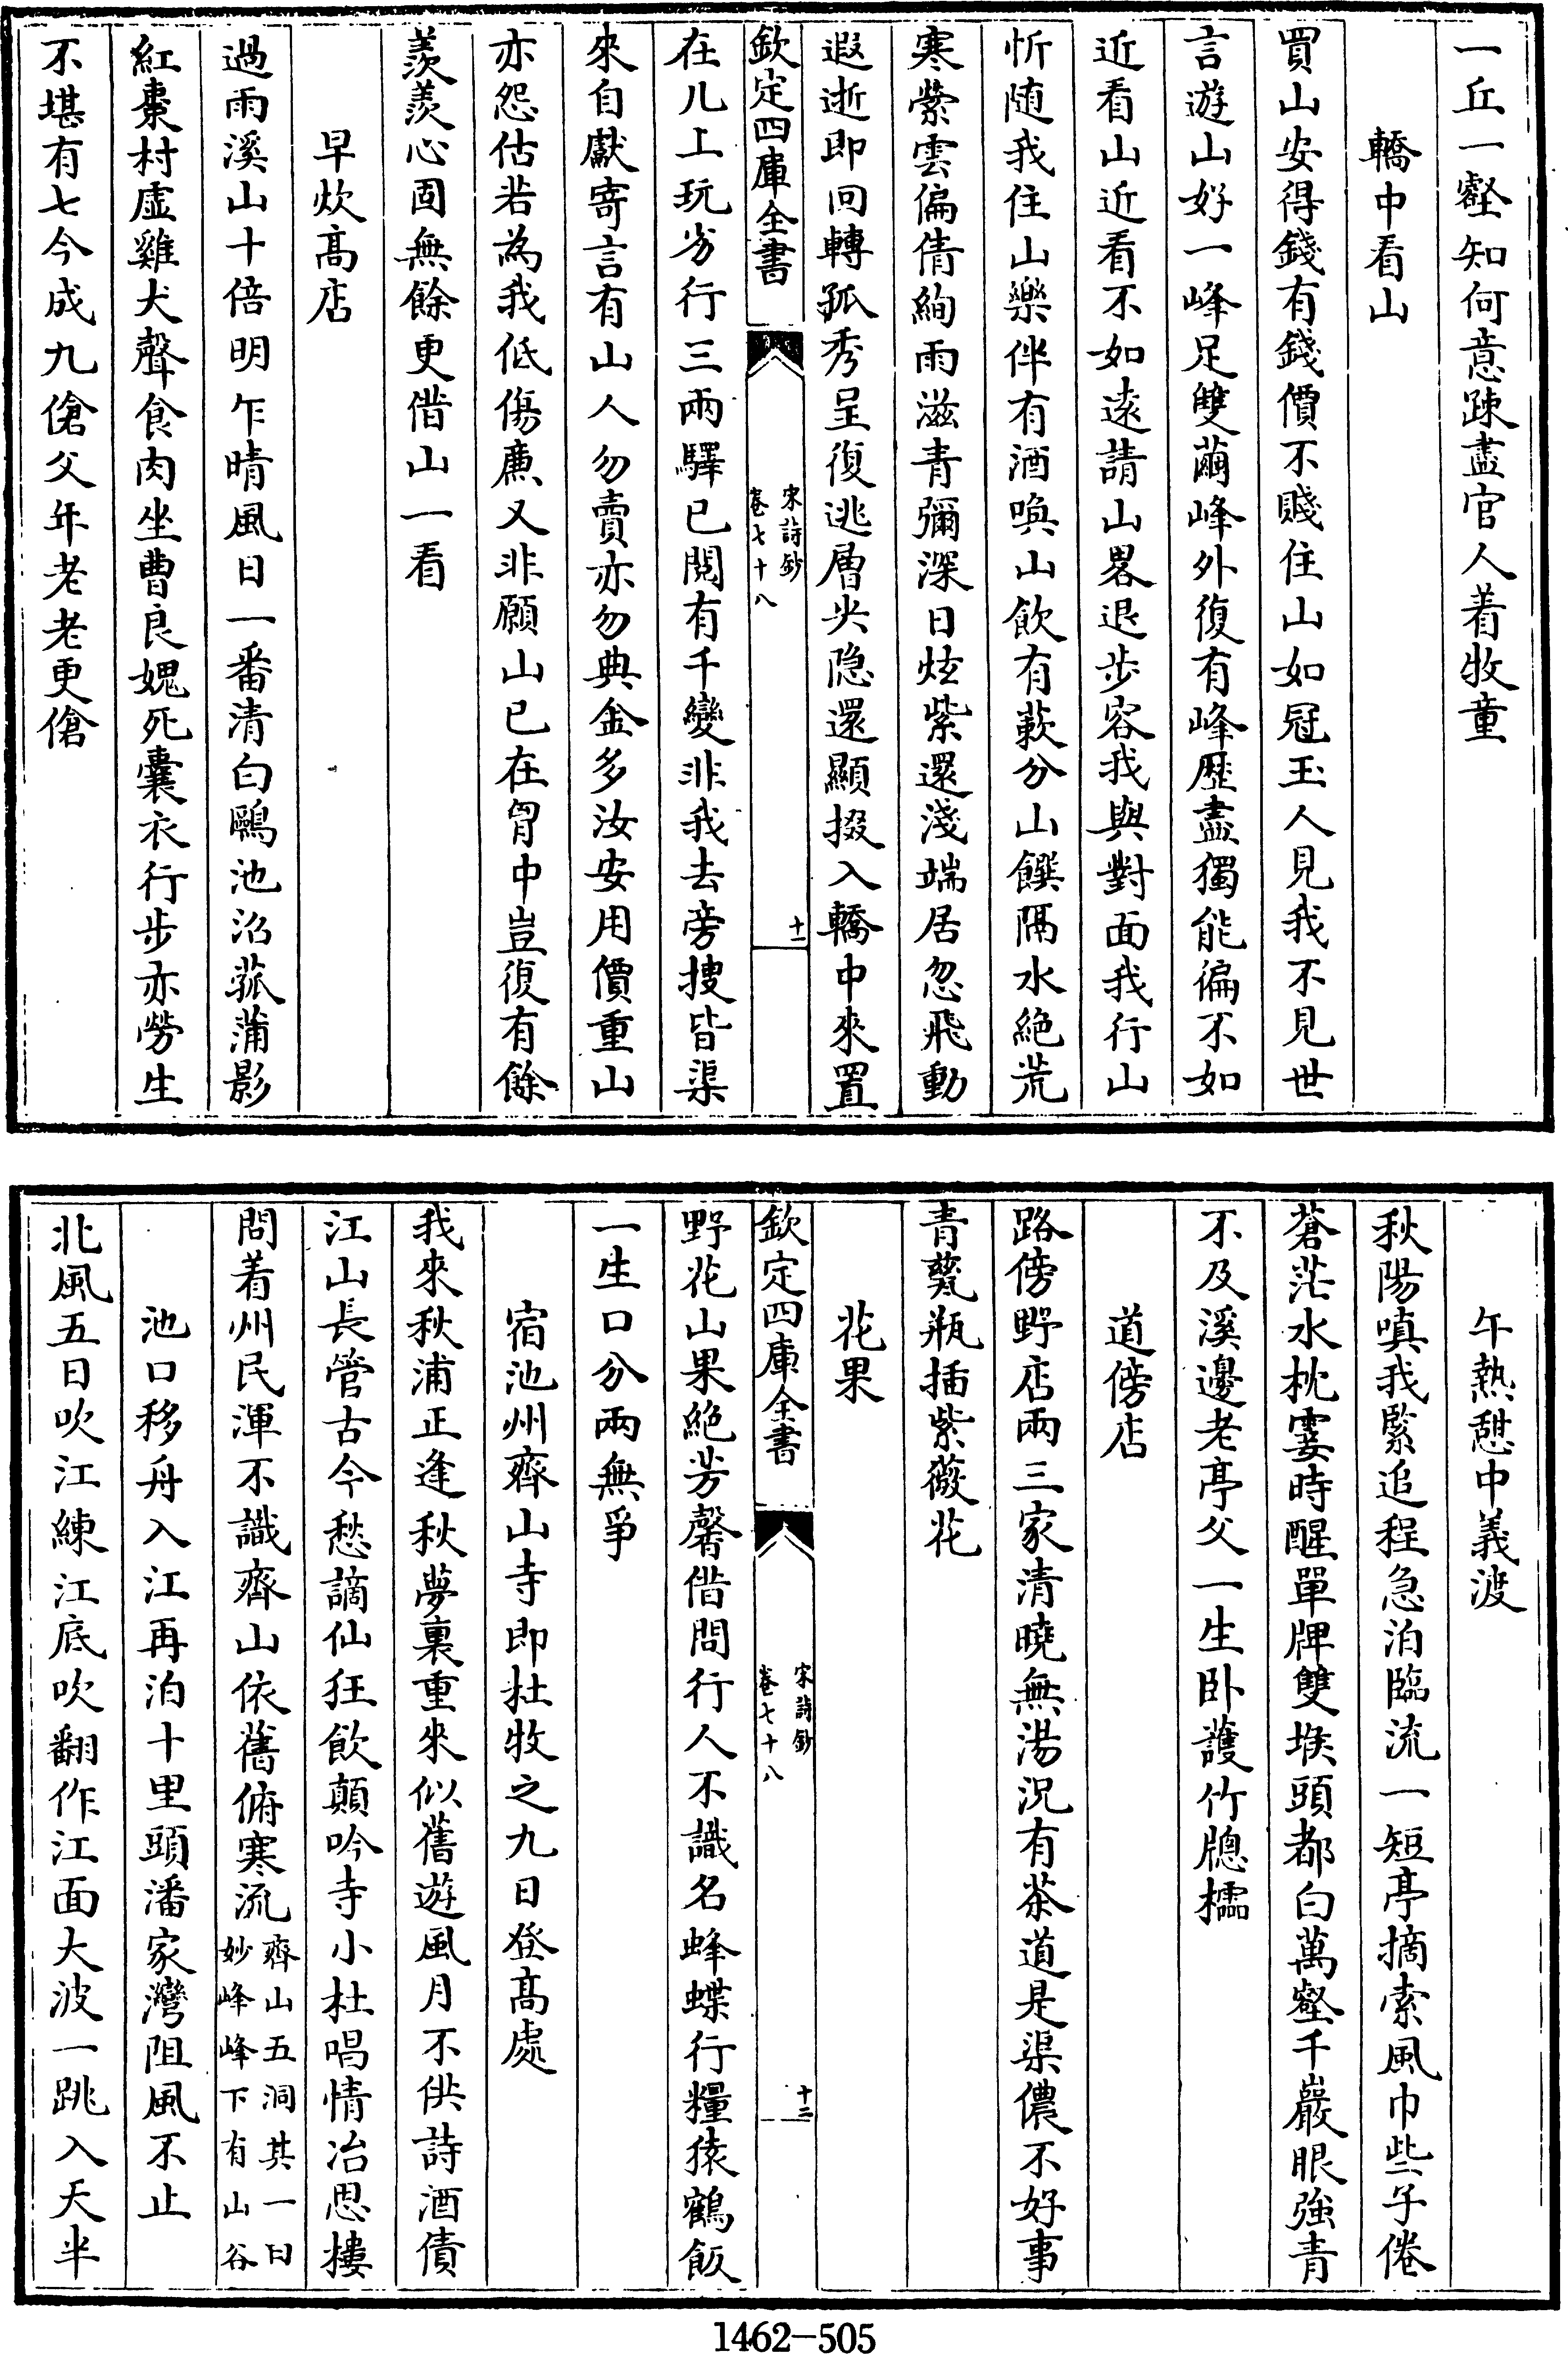 一丘一壑知何意疎盡官人着牧童
轎中看山
買山安得錢有錢價不賤住山如冠玉人見我不見世
言遊山好一峰足雙繭峰外復有峰歷盡獨能徧不如
近看山近看不如遠請山畧退步容我與對面我行山
忻随我住山樂伴有酒喚山飲有蔌分山饌隔水絶荒
寒縈雲偏倩絢雨滋青彌深日炫紫還淺端居忽飛動
遐逝即回轉孤秀呈復逃層尖隐還顯掇入轎中來置
欽定四庫全書
宋詩鈔
卷七十八
十一
在几上玩劣行三兩驛已閱有千變非我去旁搜皆渠
來自獻寄言有山人勿賣亦勿典金多汝安用價重山
亦怨估若為我低傷亷又非願山已在胷中豈復有餘
羨羨心固無餘更借山一看
早炊髙店
過雨溪山十倍明乍晴風日一番清白鷗池沼菰蒲影
紅棗村虛雞犬聲食肉坐曹良媿死囊衣行步亦勞生
不堪有七今成九傖父年老老更傖
午熱憇中義渡
秋陽嗔我緊追程急泊臨流一短亭摘索風巾些子倦
蒼茫水枕霎時醒單牌雙堠頭都白萬壑千巖眼強青
不及溪邊老亭父一生卧護竹牎櫺
道傍店
路傍野店兩三家清曉無湯況有茶道是渠儂不好事
青甆瓶插紫薇花
花果
欽定四庫全書
宋詩鈔
卷七十八
十二
野花山果絶芳馨借問行人不識名蜂蝶行糧猿鶴飯
一生口分兩無爭
宿池州齊山寺即杜牧之九日登髙處
我來秋浦正逢秋夢裏重來似舊遊風月不供詩酒債
江山長管古今愁謫仙狂飲顛吟寺小杜唱情冶思樓
問着州民渾不識齊山依舊俯寒流齊山五洞其一曰
妙峰峰下有山谷
池口移舟入江再泊十里頭潘家灣阻風不止
北風五日吹江練江底吹翻作江面大波一跳入天半
1462-505